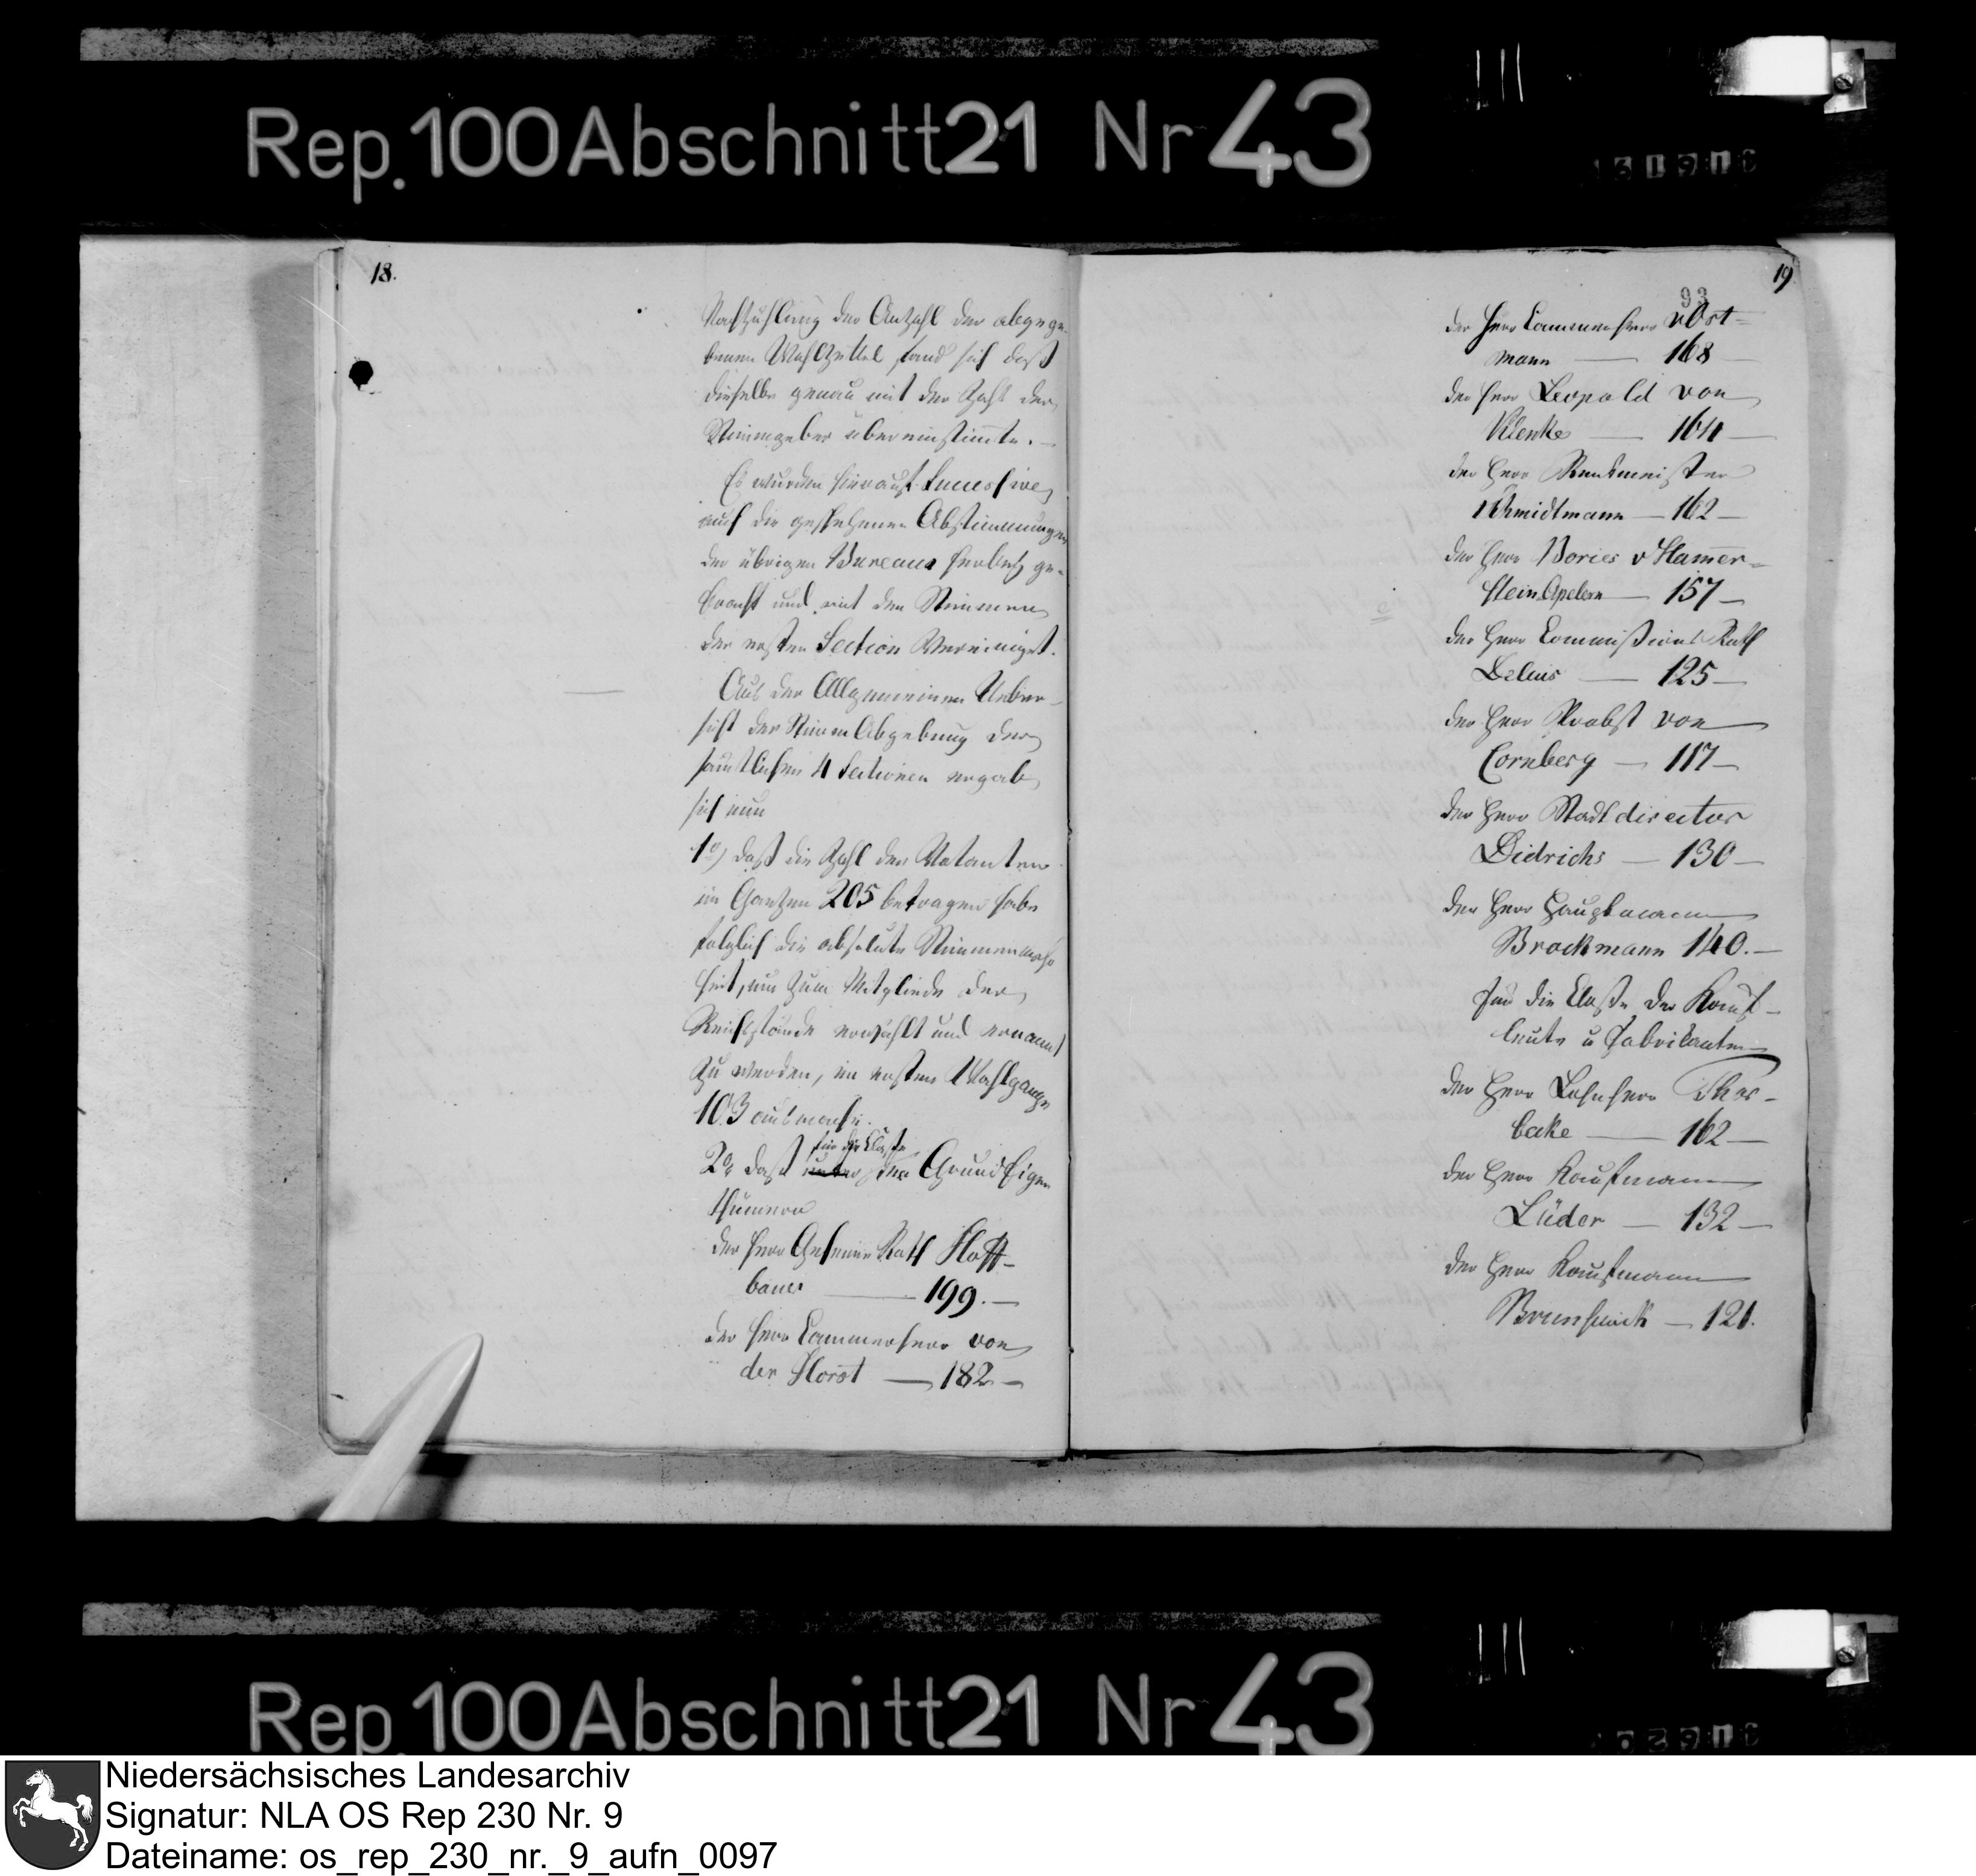 Rep. 100 Abschnitt 21 Nr 43
18.
Nachzählung der Anzahl der abgege-
benen Wahlzettel fand sich daß
dieselbe genau mit der Zahl der
Stimmgeber übereinstimte. —
Es wurden hierauf successive
auch die geschehenen Abstimmungen
der übrigen Bureaus herbey ge-
bracht und mit den Stimmen
der ersten Section Vereiniget.
Aus der Allgemeinen Ueber-
sicht der StimmAbgebung der
sämtlichen 4 Sectionen ergab
sich nun
1º) daß die Zahl der Votanten
im Ganzen 205 betragen habe
folglich die absolute Stimmenmehr
heit, um zum Mitgliede der
Reichsstände erwählt und ernannt
zu werden, im ersten Wahlgange
103 ausmache.
für die Classe
2º daß unter der GrundEigen
thümern
der Herr Geheime Rath Hoff-
bauer — 199. —
der Herr Cammerherr von
der Horst — 182 —
19
93
der Herr Cammerherr v Ost-
mann — 168
der Herr Leopold von
Klenke — 164 —
der Herr Rentmeister
Schmidtmann — 162 —
der Herr Bories v Hamer-
stein Apelern — 157 —
der Herr Commißions Rath
Delius — 125 —
der Herr Probst von
Cornberg — 117 —
der Herr Stadtdirector
Didrichs — 130 —
der Herr Hauptmann
Brockmann 140. —
für die Claße der Kauf-
leute u Fabrikanten
der Herr Lehnherr Thor-
becke — 162 —
der Herr Kaufmann
Lüder — 132 —
der Herr Kaufmann
Brunswick — 121.
Rep. 100 Abschnitt 21 Nr 43
Niedersächsisches Landesarchiv
Signatur: NLA OS Rep 230 Nr. 9
Dateiname: os_rep_230_nr._9_aufn_0097